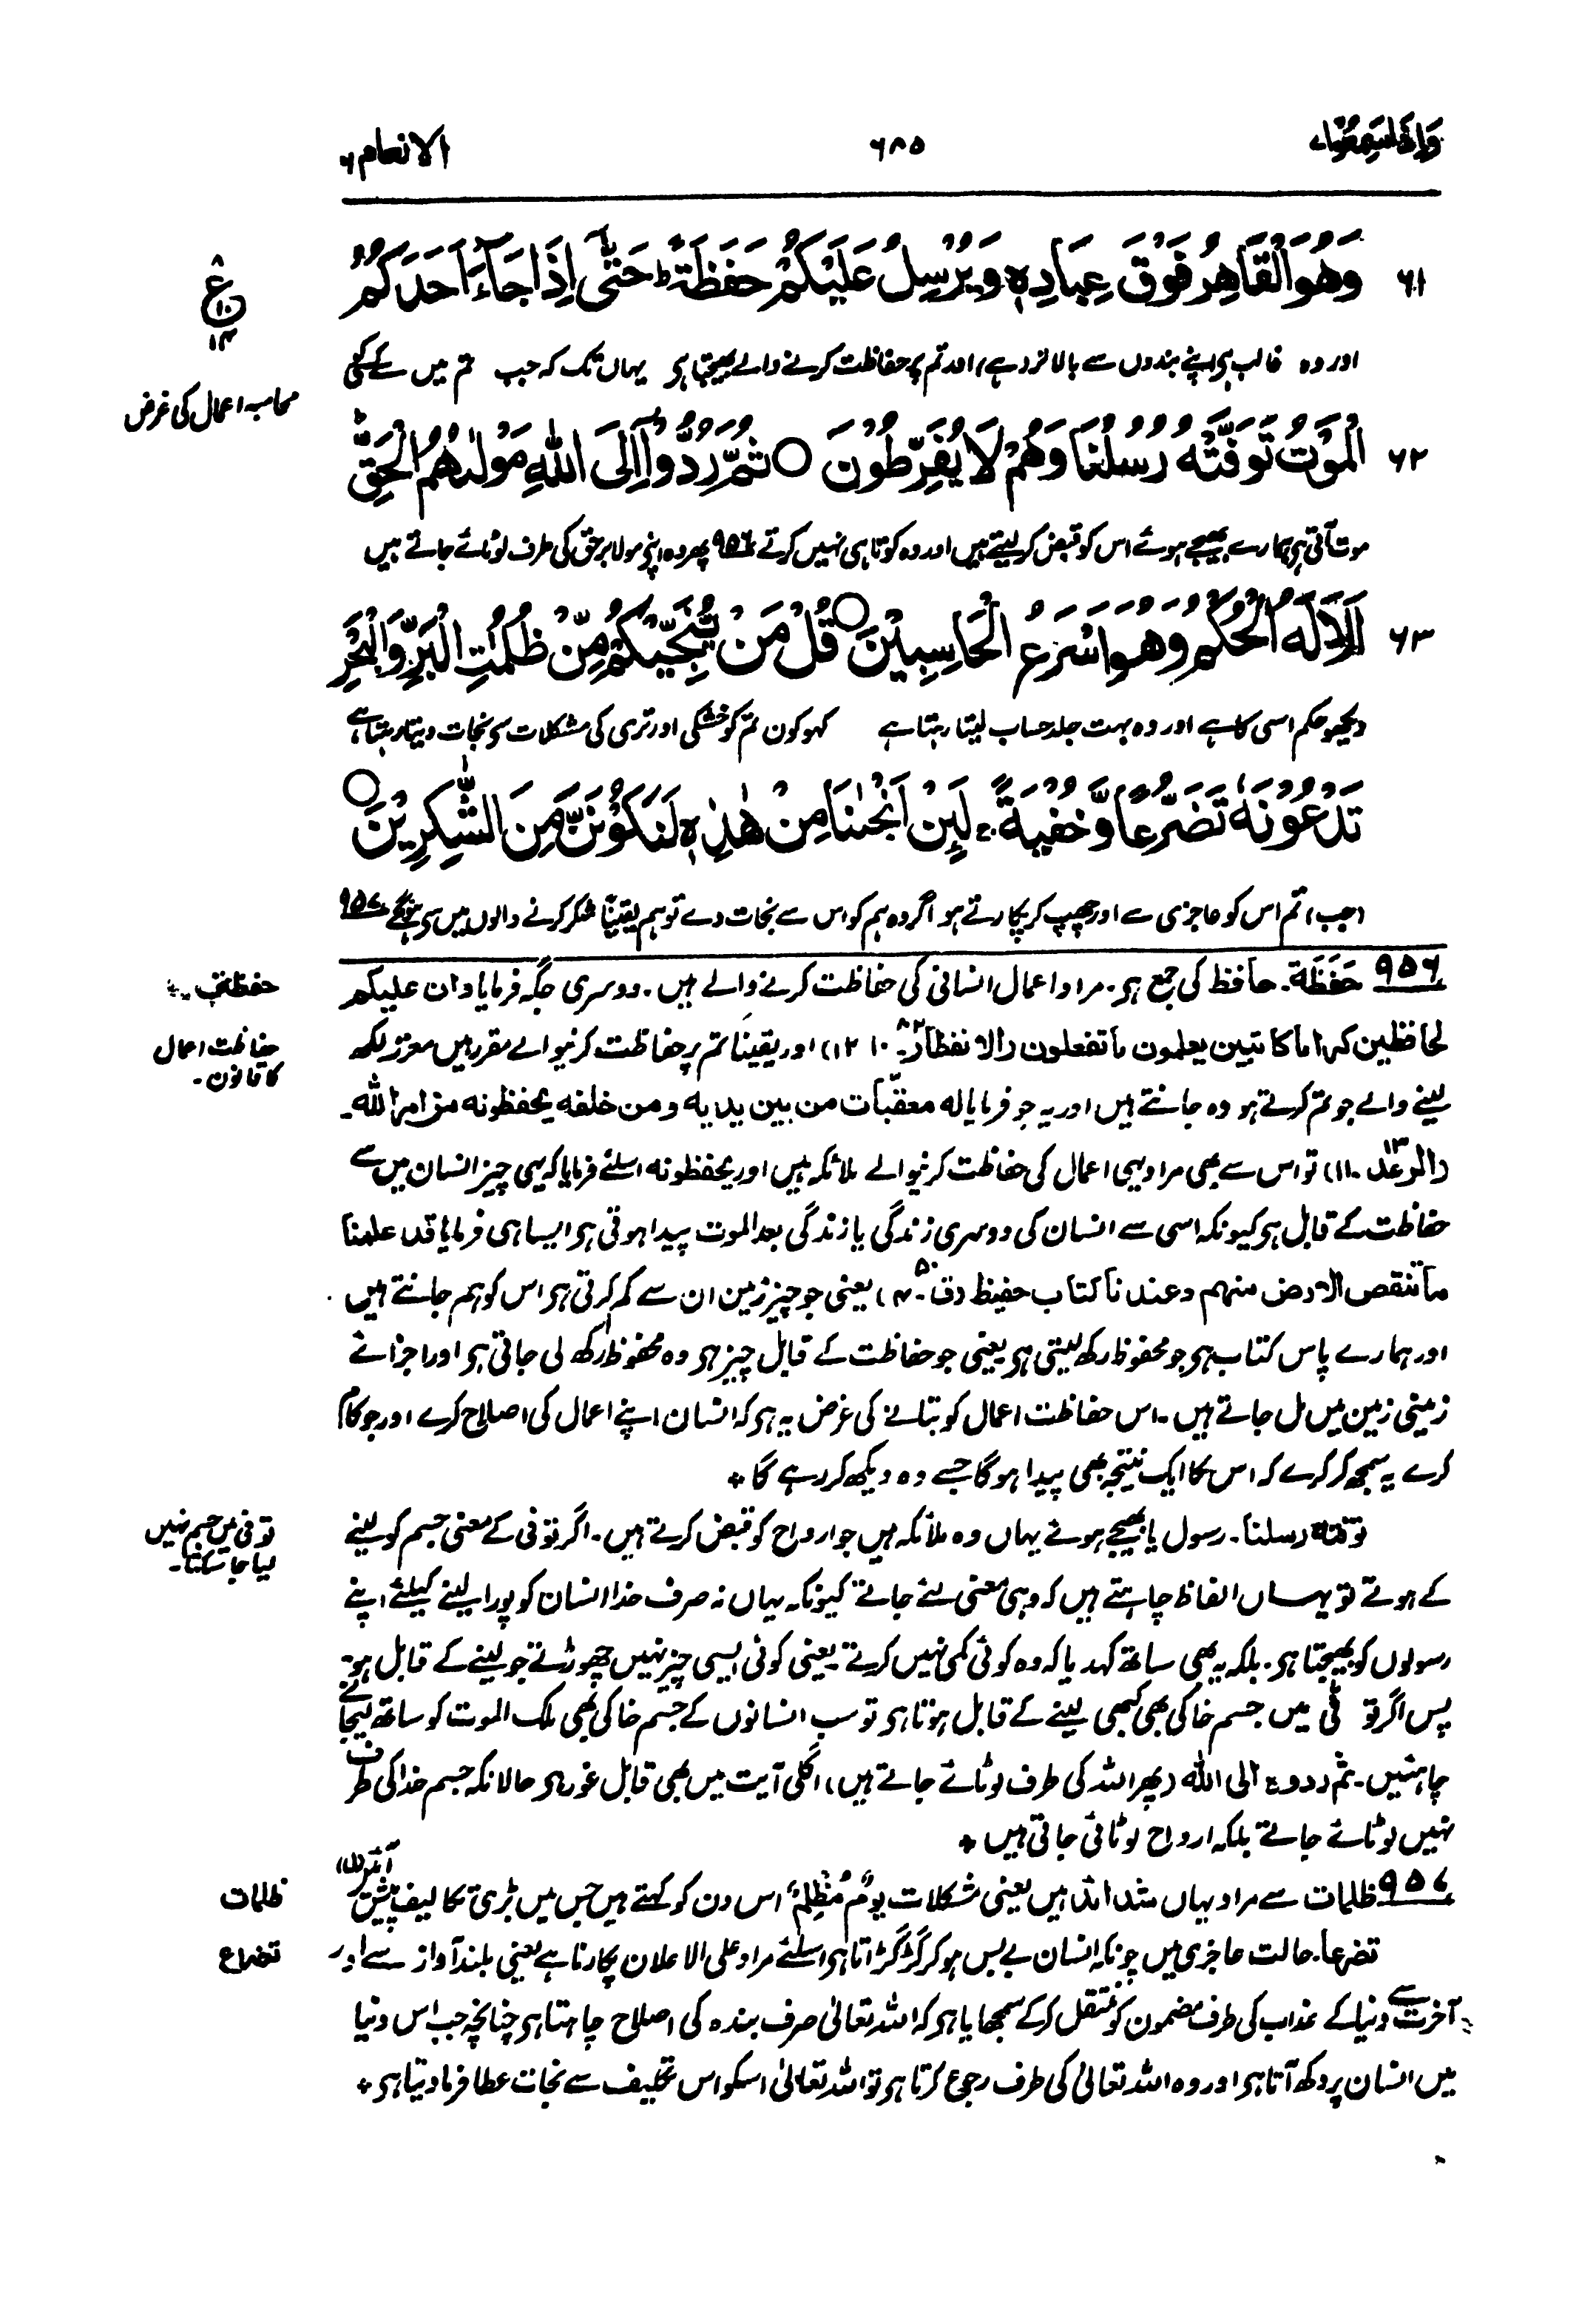 واذا سمعوا ۷
۶۸۵
الانعام ۶
۶۱ وَهُوَ الْقَاهِرُ فَوْقَ عِبَادِهٖ وَيُرْسِلُ عَلَيْكُمْ حَفَظَةً ؕ حَتّٰۤى اِذَا جَآءَ اَحَدَكُمُ
ع
۱۰
۱۴
اور وہ غالب ہی اپنے بندوں سے بالاتر (ہے) اور تم پر حفاظت کرنے والے بھیجتا ہی یہاں تک کہ جب تم میں سے کسی کے
محاسبہ اعمال کی غرض
۶۲ الْمَوْتُ تَوَفَّتْهُ رُسُلُنَا وَهُمْ لَا يُفَرِّطُوْنَ ○ ثُمَّ رُدُّوْۤا اِلَى اللّٰهِ مَوْلٰىهُمُ الْحَقِّ ؕ
موت آتی ہی ہمارے بھیجے ہوئے اس کو قبض کر لیتے ہیں اور وہ کوتاہی نہیں کرتے ۹۵۶ پھر وہ اپنے مولا برحق کی طرف لوٹائے جاتے ہیں
۶۳ اَلَا لَهُ الْحُكْمُ وَهُوَ اَسْرَعُ الْحَاسِبِيْنَ ○ قُلْ مَنْ يُّنَجِّيْكُمْ مِّنْ ظُلُمٰتِ الْبَرِّ وَالْبَحْرِ
دیکھو حکم اسی کا ہے اور وہ بہت جلد حساب لیتا رہتا ہے کہو کون تم کو خشکی اور تری کی مشکلات سی نجات دیتا رہتا ہے
تَدْعُوْنَهٗ تَضَرُّعًا وَّخُفْيَةً ۚ لَئِنْ اَنْجٰىنَا مِنْ هٰذِهٖ لَنَكُوْنَنَّ مِنَ الشّٰكِرِيْنَ ○
(جب) تم اس کو عاجزی سے اور چھپ کر پکارتے ہو اگر وہ ہم کو اس سے نجات دے تو ہم یقیناً شکر کرنے والوں میں سی ہونگے ۹۵۷
۹۵۶ حَفَظَة۔ حافظ کی جمع ہی۔ مراد اعمال انسانی کی حفاظت کرنے والے ہیں۔ دوسری جگہ فرمایا وان علیکم
حفظة
لحافظین کراما کاتبین یعلمون ما تفعلون (الانفطار ۸۲۔ ۱۰۔۱۲) اور یقیناً تم پر حفاظت کرنیوالے مقرر ہیں معزز لکھ
حفاظت اعمال
کا قانون۔
لینے والے جو تم کرتے ہو وہ جانتے ہیں اور یہ جو فرمایا له معقبات من بین یدیه ومن خلفه یحفظونه من امر الله۔
(الرعد ۱۳۔۱۱) تو اس سے بھی مراد یہی اعمال کی حفاظت کرنیوالے ملائکہ ہیں اور یحفظونه اسلئے فرمایا کہ یہی چیز انسان میں سے
حفاظت کے قابل ہی کیونکہ اسی سے انسان کی دوسری زندگی یا زندگی بعد الموت پیدا ہوتی ہی ایسا ہی فرمایا قد علمنا
ما تنقص الارض منهم وعندنا کتاب حفیظ (ق ۵۰۔۴) یعنی جو چیز زمین ان سے کم کرتی ہی اس کو ہم جانتے ہیں
اور ہمارے پاس کتاب ہی جو محفوظ رکھ لیتی ہی یعنی جو حفاظت کے قابل چیز ہی وہ محفوظ رکھ لی جاتی ہی اور اجزائے
زمینی زمین میں مل جاتے ہیں۔ اس حفاظت اعمال کو بتانے کی غرض یہ ہی کہ انسان اپنے اعمال کی اصلاح کرے اور جو کام
کرے یہ سمجھ کر کرے کہ اس کا ایک نتیجہ بھی پیدا ہوگا جسے وہ دیکھ کر رہے گا *
توفته رسلنا۔ رسول یا بھیجے ہوئے یہاں وہ ملائکہ ہیں جو ارواح کو قبض کرتے ہیں۔ اگر توفی کے معنی جسم کو لینے
توفی میں جسم نہیں
لیا جا سکتا۔
کے ہوتے تو یہاں الفاظ چاہتے ہیں کہ وہی معنی لئے جاتے کیونکہ یہاں نہ صرف خدا انسان کو پورا لینے کیلئے اپنے
رسولوں کو بھیجتا ہی۔ بلکہ یہ بھی ساتھ کہدیا کہ وہ کوئی کمی نہیں کرتے یعنی کوئی ایسی چیز نہیں چھوڑتے جو لینے کے قابل ہو۔
پس اگر توفی میں جسم خاکی بھی کبھی لینے کے قابل ہوتا ہی تو سب انسانوں کے جسم خاکی بھی ملک الموت کو ساتھ لیجانے
چاہئیں۔ ثم ردوا الی الله (پھر اللہ کی طرف لوٹائے جاتے ہیں) اگلی آیت میں بھی قابل غور ہی حالانکہ جسم خدا کی طرف
نہیں لوٹائے جاتے بلکہ ارواح لوٹائی جاتی ہیں *
۹۵۷ ظلمات سے مراد یہاں شدائد ہیں یعنی مشکلات یَوْمٌ مُظْلِمٌ اس دن کو کہتے ہیں جس میں بڑی تکالیف پیش آئیں (ل)
ظلمات
تضرعا۔ حالت عاجزی میں چونکہ انسان بے بس ہو کر گڑگڑاتا ہی اسلئے مراد علی الاعلان پکارنا ہے یعنی بلند آواز سے اور
تضراع
آخرت سے دنیا کے عذاب کی طرف مضمون کو منتقل کر کے سمجھایا ہی کہ اللہ تعالیٰ صرف بندہ کی اصلاح چاہتا ہی چنانچہ جب اس دنیا
میں انسان پر دکھ آتا ہی اور وہ اللہ تعالیٰ کی طرف رجوع کرتا ہی تو اللہ تعالیٰ اسکو اس تکلیف سے نجات عطا فرما دیتا ہی *